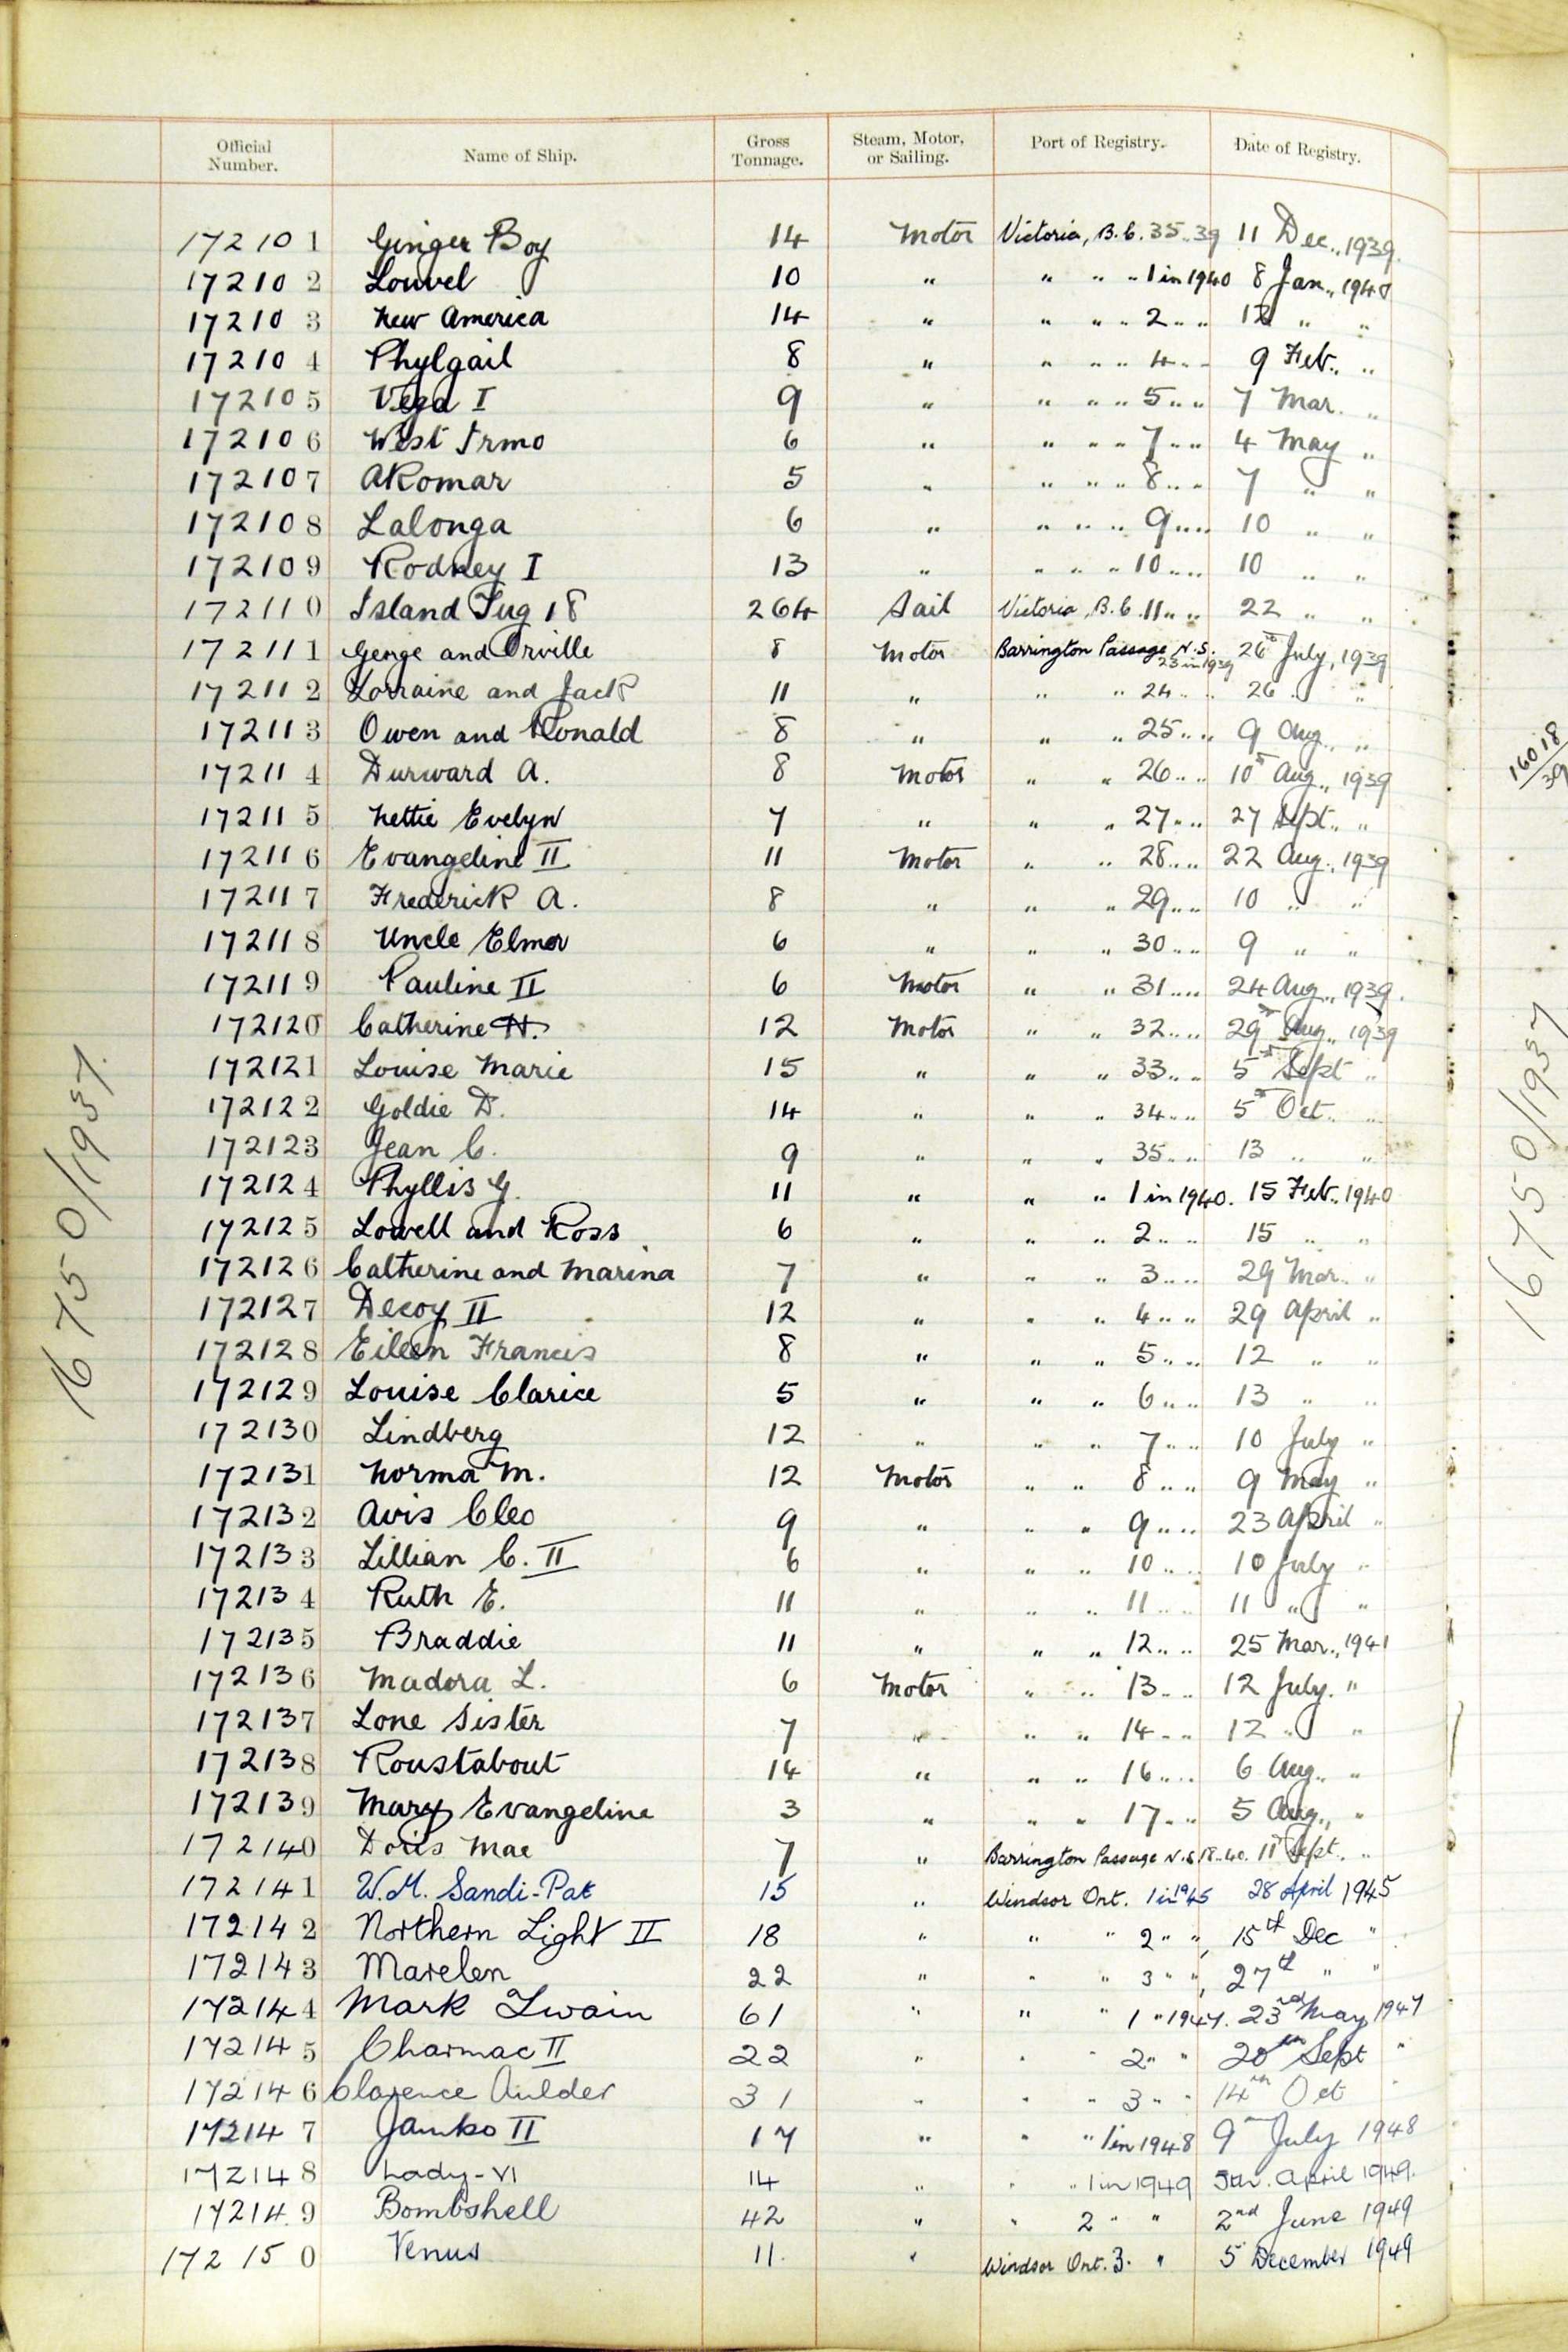 Official Number. Name of Ship. Gross Tonnage. Steam, Motor, or Sailing. Port of Registry. Date of Registry.
172101 Ginger Boy 14 Motor Victoria, B.C. 35 .. 39 11 Dec., 1939.
172102 Louvel 10 " " " " 1 in 1940 8 Jan., 1940
172103 New America 14 " " " " 2 " " 12 " "
172104 Phylgail 8 " " " " 4 " " 9 Feb. "
172105 Vega I 9 " " " " 5 " " 7 Mar. "
172106 West Irmo 6 " " " " 7 " " 4 May "
172107 AKomar 5 " " " " 8 " " 7 " "
172108 Lalonga 6 " " " " 9 " " 10 " "
172109 Rodney I 13 " " " " 10 " " 10 " "
172110 Island Tug 18 264 Sail Victoria, B.C. 11 " " 22 " "
172111 George and Orville 8 Motor Barrington Passage N.S. 23 in 1939 26th July, 1939
172112 Lorraine and Jack 11 " " " 24 " " 26 " "
172113 Owen and Ronald 8 " " " 25 " " 9 Aug. "
172114 Durward A. 8 Motor " " 26 " " 10th Aug., 1939
172115 Nettie Evelyn 7 " " " 27 " " 27 Sept. "
172116 Evangeline II 11 Motor " " 28 " " 22 Aug., 1939
172117 Frederick A. 8 " " " 29 " " 10 " "
172118 Uncle Elmer 6 " " " 30 " " 9 " "
172119 Pauline II 6 Motor " " 31 " " 24 Aug., 1939.
172120 Catherine H. 12 Motor " " 32 " " 29th Aug., 1939
172121 Louise Marie 15 " " " 33 " " 5th Sept "
172122 Goldie D. 14 " " " 34 " " 5th Oct. "
172123 Jean C. 9 " " " 35 " " 13 " "
172124 Phyllis G. 11 " " " 1 in 1940. 15 Feb., 1940
172125 Lowell and Ross 6 " " " 2 " " 15 " "
172126 Catherine and Marina 7 " " " 3 " " 29 Mar. "
172127 Decoy II 12 " " " 4 " " 29 April "
172128 Eileen Francis 8 " " " 5 " " 12 " "
172129 Louise Clarice 5 " " " 6 " " 13 " "
172130 Lindberg 12 " " " 7 " " 10 July "
172131 Norma M. 12 Motor " " 8 " " 9 May "
172132 Avis Cleo 9 " " " 9 " " 23 April "
172133 Lillian C. II 6 " " " 10 " " 10 July "
172134 Ruth E. 11 " " " 11 " " 11 " "
172135 Braddie 11 " " " 12 " " 25 Mar., 1941
172136 Madora L. 6 Motor " " 13 " " 12 July. "
172137 Lone Sister 7 " " " 14 " " 12 " "
172138 Roustabout 14 " " " 16 " " 6 Aug. "
172139 Mary Evangeline 3 " " " 17 " " 5 Aug., "
172140 Doris Mae 7 " Barrington Passage N.S. 18 .. 40. 11 Sept. "
172141 W.M. Sandi-Pat 15 " Windsor Ont. 1 in 1945 28 April 1945
172142 Northern Light II 18 " " " 2 " " 15th Dec "
172143 Marelen 22 " " " 3 " " 27th " "
172144 Mark Twain 61 " " " 1 " 1947. 23rd May 1947
172145 Charmac II 22 " " " 2 " " 20th Sept "
172146 Clarence Aulder 31 " " " 3 " " 14th Oct "
172147 Jambo II 17 " " " 1 in 1948 9th July 1948
172148 Lady-VI 14 " " " 1 in 1949 5th. April 1949.
172149 Bombshell 42 " " 2 " " 2nd June 1949
172150 Venus 11. " Windsor Ont. 3. " 5 December 1949
16750/1937.
16018/39
16750/1937